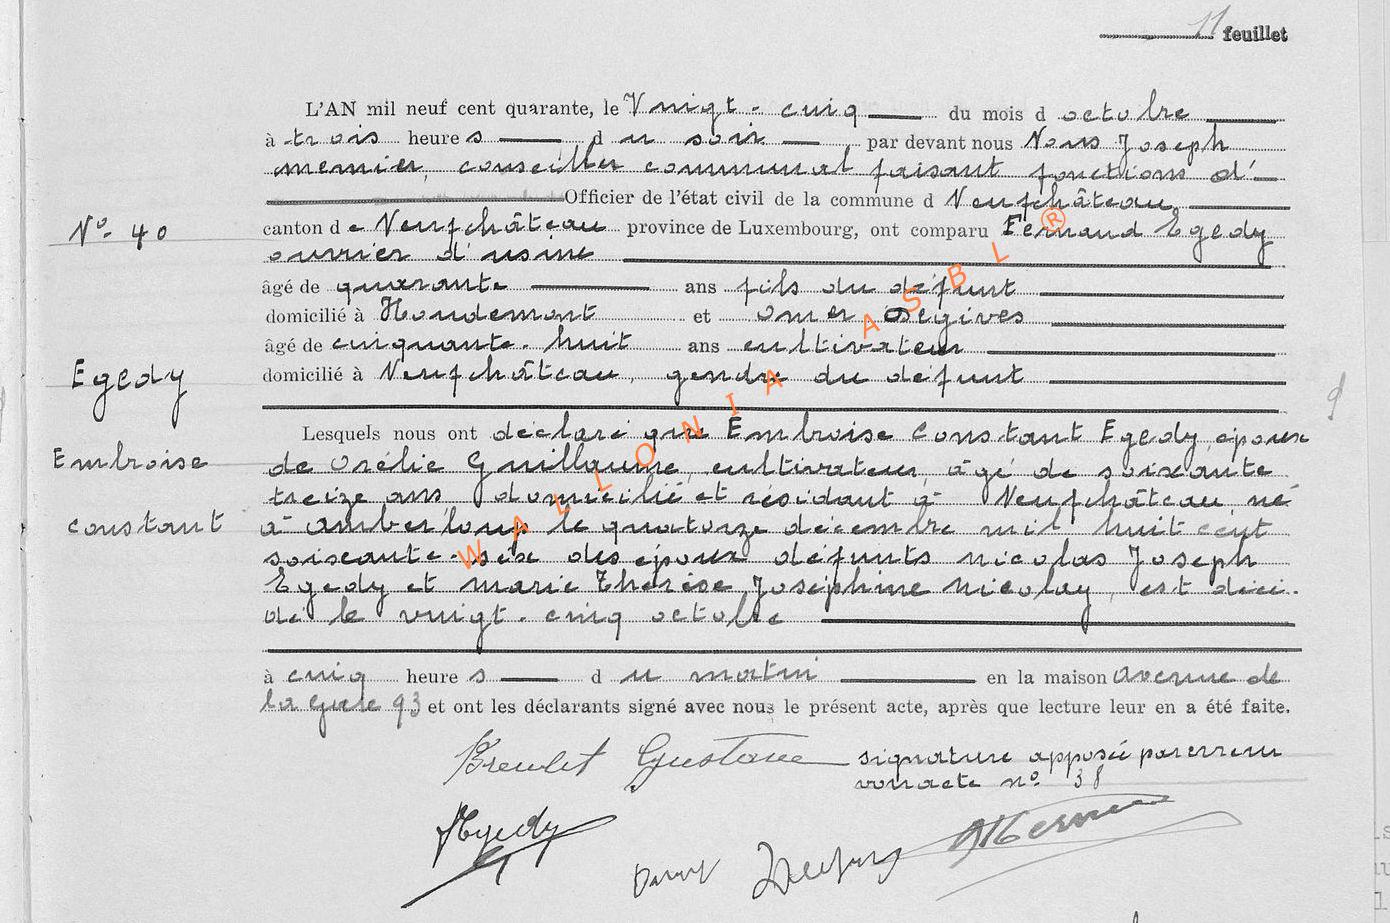 11 feuillet
L'AN mil neuf cent quarante, le Vnigt-cinq du mois d octobre
à trois heure s d u soir par devant nous Nous Joseph
mernier, conseiller communal faisant fonctions d'
Officier de l'état civil de la commune d Neufchâteau,
N° 40
canton d e Neufchâteau province de Luxembourg, ont comparu Fernand Egedy
ouvrier d'usine
âgé de quarante ans fils du défunt
domicilié à Hondemont et Omer Desgives
âgé de cinquante-huit ans cultivateur
Egedy
domicilié à Neufchâteau, gendre du défunt
Lesquels nous ont déclaré que Embroise Constant Egedy époux
Embroise
de Orélie Guillaume, cultivateur, âgé de soixante
treize ans domicilié et résidant à Neufchâteau né
constant
à amberloup le quatorze décembre mil huit cent
soixante-six des époux défunts nicolas Joseph
Egedy et marie Thérèse Joséphine Nicolay, est décé-
dé le vnigt-cinq octobre
à cinq heure s d u matin en la maison avenue de
la gare 93 et ont les déclarants signé avec nous le présent acte, après que lecture leur en a été faite.
Breulet Gustave signature apposée par erreur
voir acte n° 38
Egedy
Mernier
WALLONIA ASBL ®